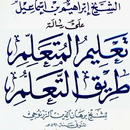 الشيخ إبراهيم بن إسماعيل
على رسالة
تعليم المتعلم
طريق التعلم
للشيخ برهان الدين الزرنوجي